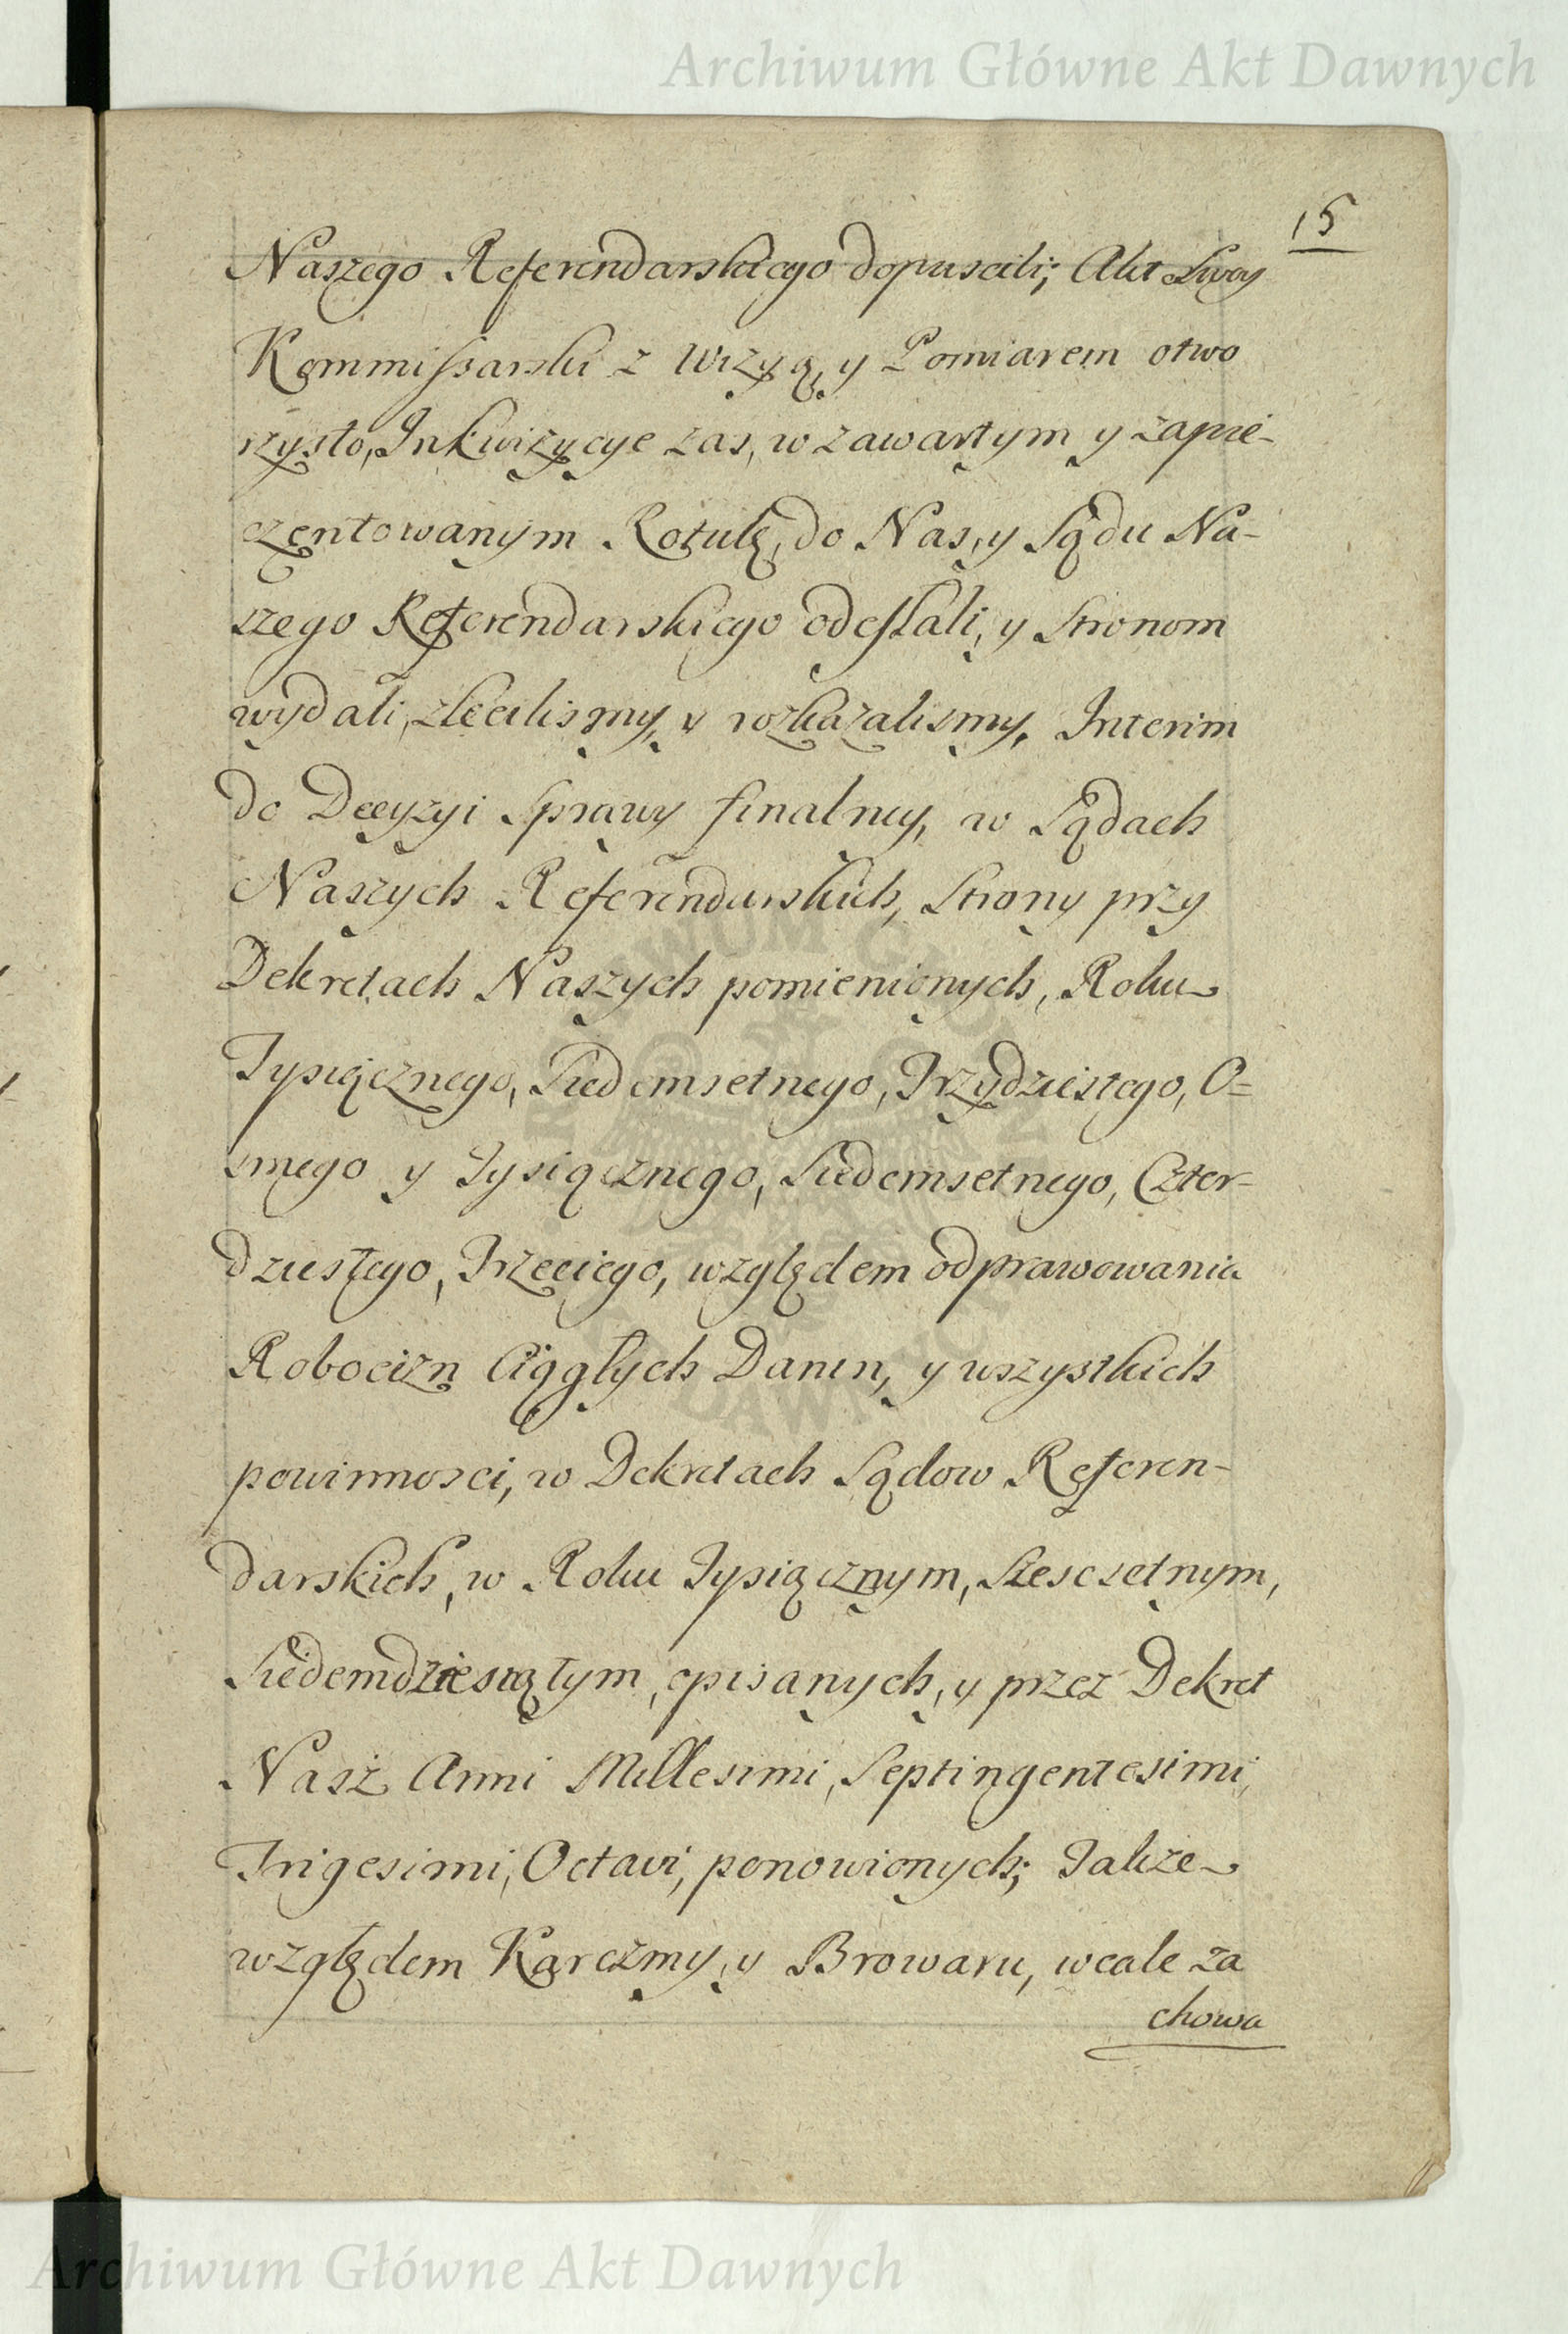 Archiwum Główne Akt Dawnych
15
Naszego Referendarskiego dopuscili; Akt Swoy
Kommissarski z Wizyą, y Pomiarem otwo
rzysto, Inkwizycye zas, w zawartym y zapie-
czentowanym Rotulę, do Nas, y Sądu Na-
szego Referendarskiego odesłali, y Stronom
wydali, zlecilismy, y rozkazalismy, Interim
do Decyzyi Sprawy finalney, w Sądach
Naszych Referendarskich, Strony przy
Dekretach Naszych pomienionych, Roku
Tysiącznego, Siedemsetnego, Trzydziestego, O=
smego y Tysiącznego, Siedemsetnego, Czter-
dziestego, Trzeciego, względem odprawowania
Robocizn Ciągłych Danin, y wszystkich
powinnosci, w Dekretach Sądow Referen-
darskich, w Roku Tysiącznym, Szescsetnym,
Siedemdziesiątym, opisanych, y przez Dekret
Nasz Anni Millesimi, Septingentesimi,
Trigesimi, Octavi, ponowionych; Jakze
względem Karczmy, y Browaru, wcale za
chowa
Archiwum Główne Akt Dawnych